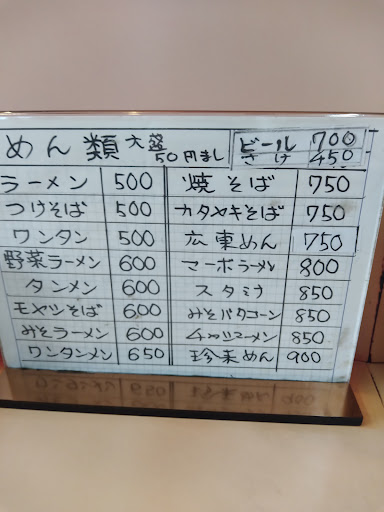 めん類 大盛 50円まし
ビール 700
さけ 450
ラーメン 500
つけそば 500
ワンタン 500
野菜ラーメン 600
タンメン 600
モヤシそば 600
みそラーメン 600
ワンタンメン 650
焼そば 750
カタヤキそば 750
広東めん 750
マーボラーメン 800
スタミナ 850
みそバタコーン 850
チャーシューメン 850
珍来めん 900